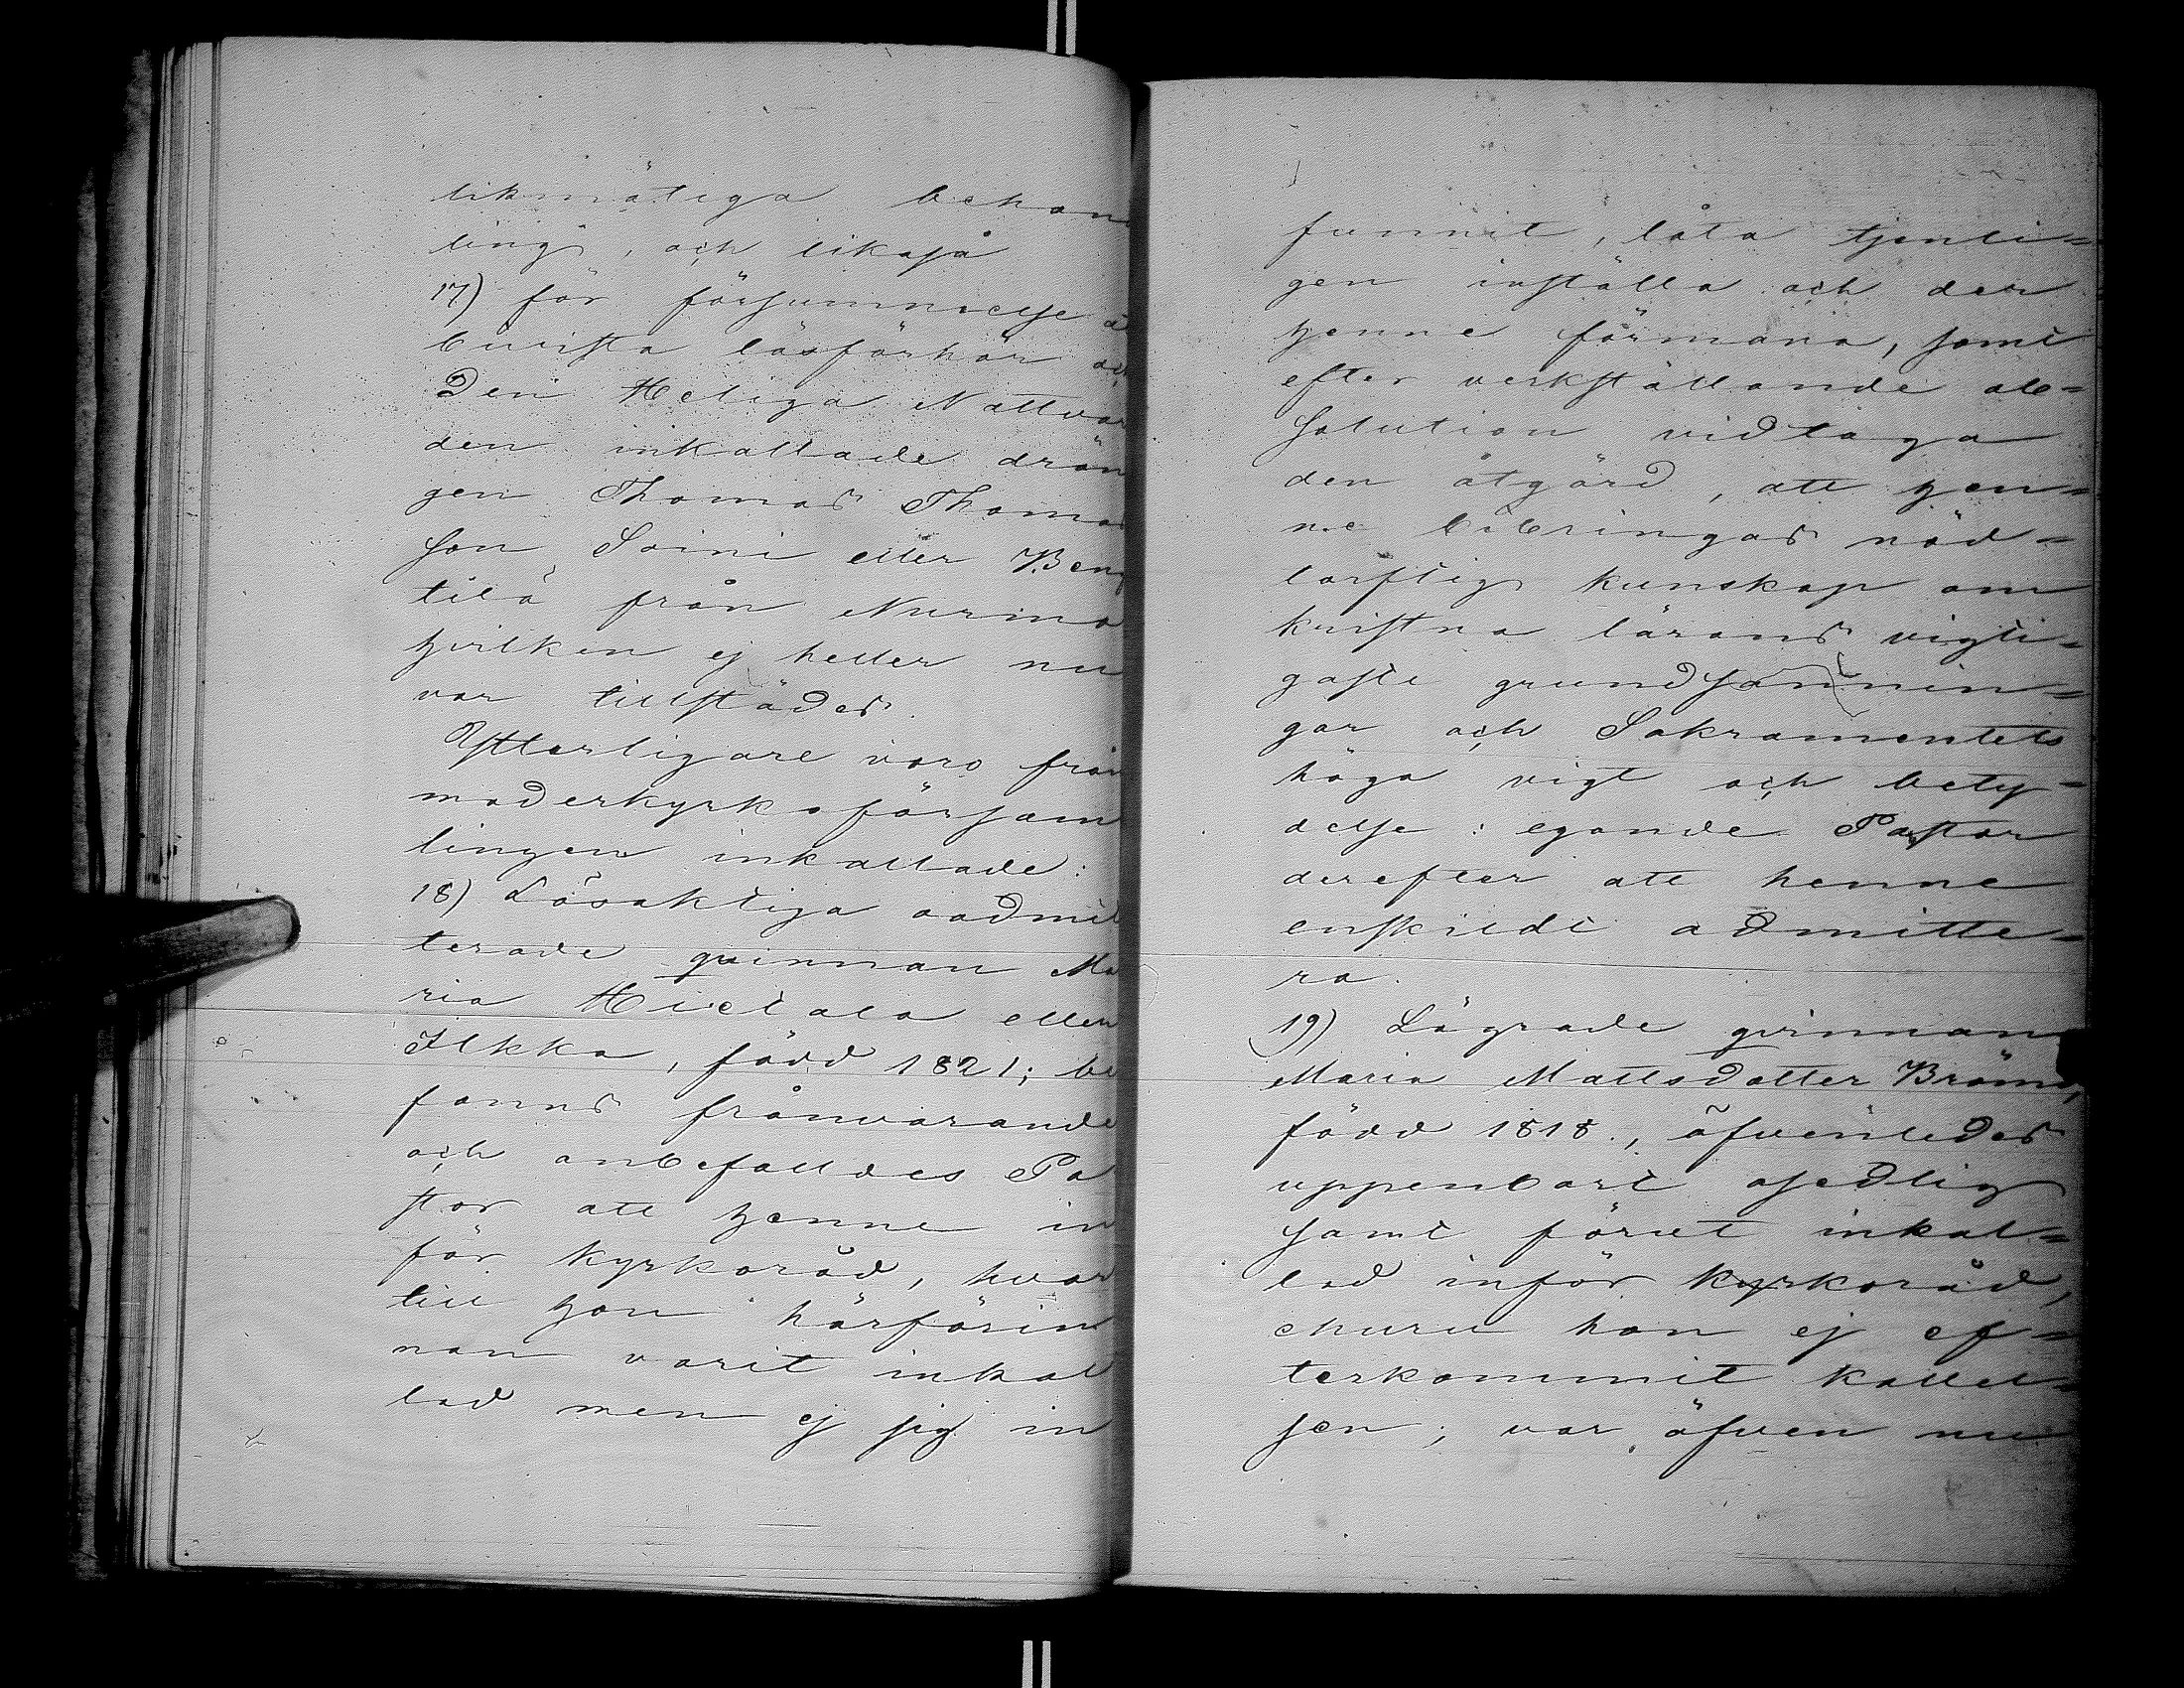 likmätiga behan
ling, och likaså
17) för försummelse a
bevista läsförhör och
Den Heliga Nattvar
den inkallade drän
gen Thomas Thomas
son Soini eller Beng
tilä från Nurmo
hvilken ej heller nu
var tillstädes.
Ytterligare voro från
moderkyrkoförsam
lingen inkallade:
18) Lösaktiga oadmit
terade qvinnan Ma
ria Hietala eller
Ilkka, född 1821; be
fanns frånvarande
och anbefalldes Pa
stor att henne in
för kyrkoråd, hvar
till hon härförin
nan varit inkal
lad men ej sig in
funnit, låta tjenli=
gen inställa och der
henne förmana, samt
efter verkställande ab=
solution vidtaga
den åtgärd, att hen=
ne bibringas nöd=
torftig kunskap om
kristna lärans vigti=
gaste grundsannin=
gar och Sakramentets
höga vigt och bety=
delse: egande Pastor
derefter att henne
enskildt admitte=
ra.
19) Lägrade qvinnan
Maria Mattsdotter Bräms,
född 1818., äfvenledes
uppenbart osedlig
samt förut inkal=
lad inför kyrkoråd,
churu hon ej ef=
terkommit kallel=
sen; var äfven nu